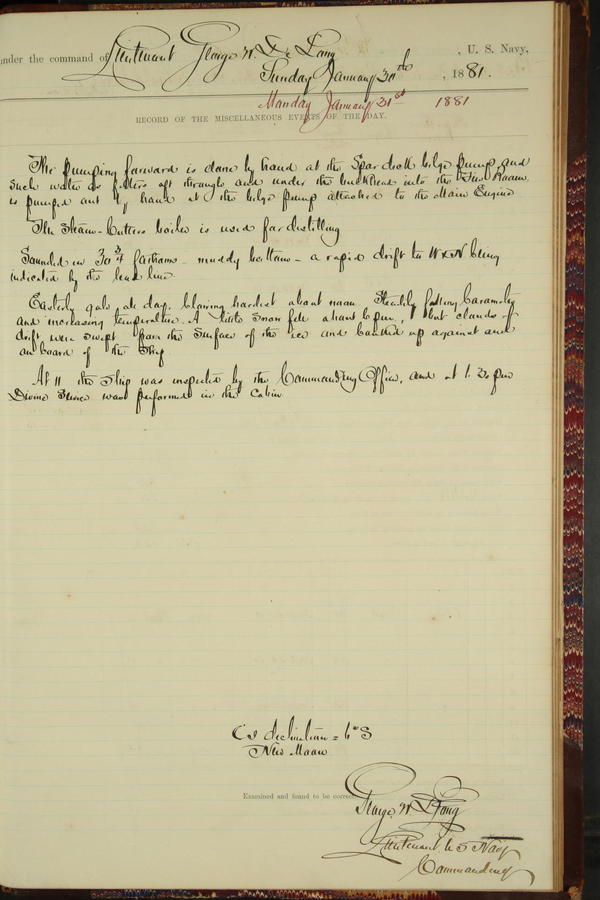 under the command of Lieutenant George W. De Long, U. S. Navy,
Sunday January 30th, 1881.
Monday January 31st 1881
RECORD OF THE MISCELLANEOUS EVENTS OF THE DAY.
The pumping forward is done by hand at the Spar deck bilge pump, and
such water as filters aft through and under the bulkhead into the Fire Room
is pumped out by hand at the bilge pump attached to the Main Engine
The Steam-Cutters boiler is used for distilling
Sounded in 30 3/4 fathoms - muddy bottom - a rapid drift to W x N being
indicated by the lead line.
Easterly gale all day, blowing hardest about noon Steadily falling barometer
and increasing temperature. A little snow fell about 6 pm, but clouds of
drift were swept from the surface of the ice and banked up against and
on board of the Ship
At 11 the Ship was inspected by the Commanding Officer, and at 1.30 pm
Divine Service was performed in the Cabin
declination = 6° S
New Moon
Examined and found to be correct.
George W. De Long
Lieutenant U S Navy
Commanding